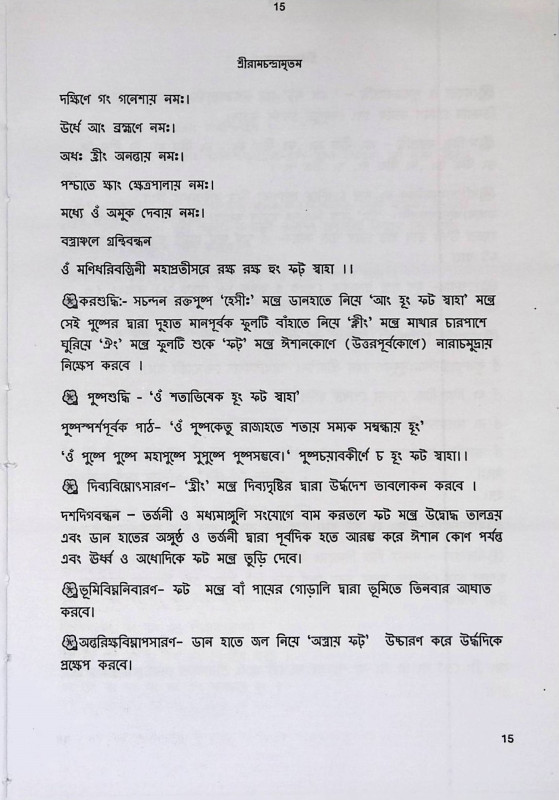 15
শ্রীরামচন্দ্রামৃতম
দক্ষিণে গং গনেশায় নমঃ।
উর্ধে আং ব্রহ্মণে নমঃ।
অধঃ হ্রীং অনন্তায় নমঃ।
পশ্চাতে ক্ষাং ক্ষেত্রপালায় নমঃ।
মধ্যে ওঁ অমুক দেবায় নমঃ।
বস্ত্রাঞ্চলে গ্রন্থিবন্ধন
ওঁ মণিধরিবজ্রিনী মহাপ্রতীসরে রক্ষ রক্ষ হুং ফট্ স্বাহা ।।
করশুদ্ধি:- সচন্দন রক্তপুষ্প ‘হেসীঃ’ মন্ত্রে ডানহাতে নিয়ে ‘আং হূং ফট স্বাহা’ মন্ত্রে
সেই পুষ্পের দ্বারা দুহাত মানপূর্বক ফুলটি বাঁহাতে নিয়ে ‘ক্লীং’ মন্ত্রে মাথার চারপাশে
ঘুরিয়ে ‘ঐং’ মন্ত্রে ফুলটি শুকে ‘ফট্’ মন্ত্রে ঈশানকোণে (উত্তরপূর্বকোণে) নারাচমুদ্রায়
নিক্ষেপ করবে ।
পুষ্পশুদ্ধি - ‘ওঁ শতাভিষেক হূং ফট স্বাহা’
পুষ্পস্পর্শপূর্বক পাঠ- ‘ওঁ পুষ্পকেতু রাজাহতে শতায় সম্যক সম্বন্ধায় হূং’
‘ওঁ পুষ্পে পুষ্পে মহাপুষ্পে সুপুষ্পে পুষ্পসম্ভবে।‘ পুষ্পচয়াবকীর্ণে চ হূং ফট স্বাহা।।
দিব্যবিঘ্নোৎসারণ- ‘হ্রীং’ মন্ত্রে দিব্যদৃষ্টির দ্বারা উর্দ্ধদেশ ভাবলোকন করবে ।
দশদিগবন্ধন – তর্জনী ও মধ্যমাঙ্গুলি সংযোগে বাম করতলে ফট মন্ত্রে উদ্বোদ্ধ তালত্রয়
এবং ডান হাতের অঙ্গুষ্ঠ ও তর্জনী দ্বারা পূর্বদিক হতে আরম্ভ করে ঈশান কোণ পর্যন্ত
এবং ঊর্ধ্ব ও অধোদিকে ফট মন্ত্রে তুড়ি দেবে।
ভূমিবিঘ্ননিবারণ- ফট মন্ত্রে বাঁ পায়ের গোড়ালি দ্বারা ভূমিতে তিনবার আঘাত
করবে।
অন্তরিক্ষবিঘ্নাপসারণ- ডান হাতে জল নিয়ে ‘অস্ত্রায় ফট্’ উচ্চারণ করে উর্দ্ধদিকে
প্রক্ষেপ করবে।
15